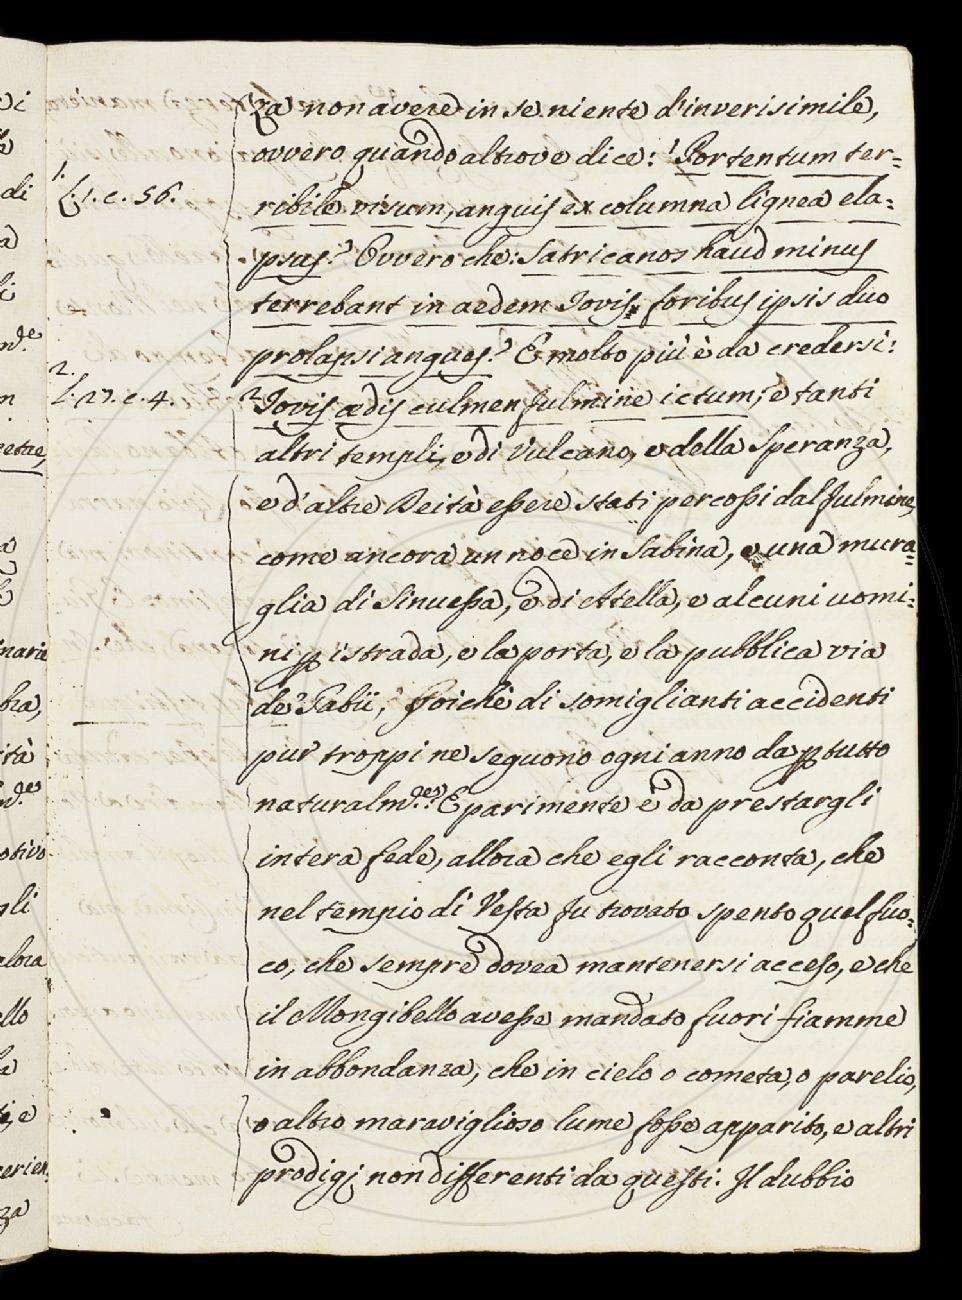 za non avere in se niente d'inverisimile,
ovvero quando altrove dice: ¹Portentum ter=
1.
L. 1. c. 56.
ribile visum, anguis ex columna lignea ela=
psas? Ovvero che: Satricanos haud minus
terrebant in aedem Iovis, foribus ipsis duo
prolapsi angues? E molto più è da credersi:
2.
L. 27. c. 4.
²Iovis ædis culmen fulmine ictum, e tanti
altri templi, e di Vulcano, e della Speranza,
e d'altre Deità essere stati percossi dal fulmine,
come ancora un noce in Sabina, e una mura=
glia di Sinuessa, e di Atella, e alcuni uomi=
ni p istrada, e la porta, e la pubblica via
de' Gabii, poichè di somiglianti accidenti
pur troppi ne seguono ogni anno da p tutto
naturalm.te E parimente è da prestargli
intera fede, allora che egli racconta, che
nel tempio di Vesta fu trovato spento quel fuo=
co, che sempre dovea mantenersi acceso, e che
il Mongibello avesse mandato fuori fiamme
in abbondanza, che in cielo o cometa, o parelio,
o altro maraviglioso lume fosse apparito, e altri
prodigj non differenti da questi. Il dubbio